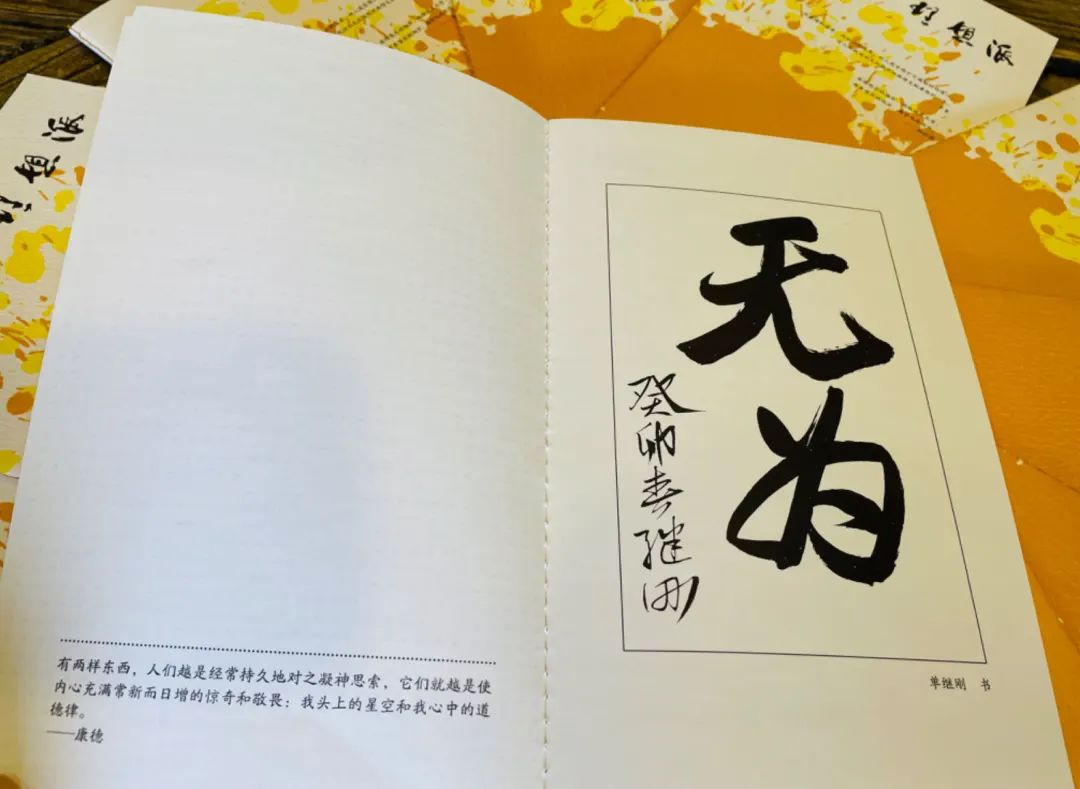 有两样东西，人们越是经常持久地对之凝神思索，它们就越是使
内心充满常新而日增的惊奇和敬畏：我头上的星空和我心中的道
德律。
——康德
无为
癸卯春继刚
单继刚 书